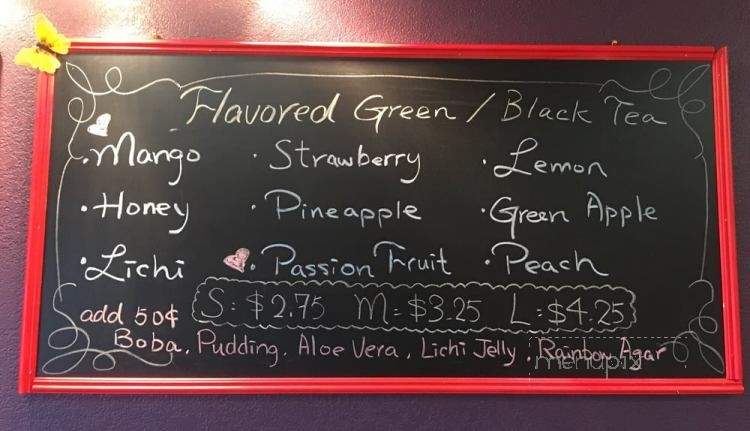 Flavored Green / Black Tea
· Mango · Strawberry · Lemon
· Honey · Pineapple · Green Apple
· Lichi · Passion Fruit · Peach
add 50¢ S: $2.75 M= $3.25 L: $4.25
Boba, Pudding, Aloe Vera, Lichi Jelly, Rainbow Agar
menupix